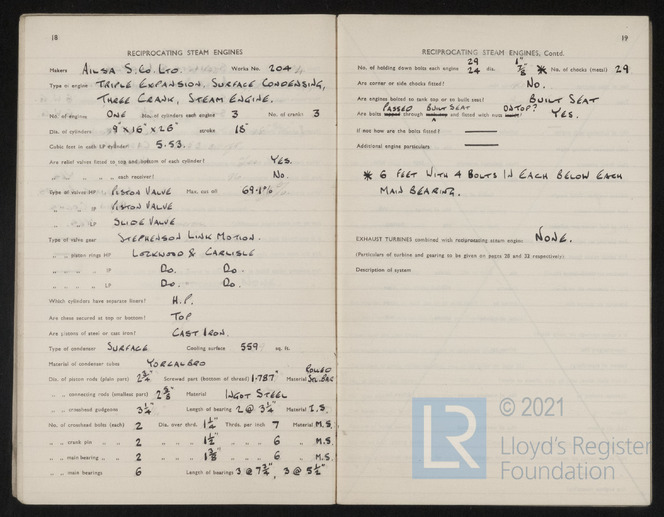 18
RECIPROCATING STEAM ENGINES
Makers AILSA S. Co. LTD. Works No. 204
Type of engine TRIPLE EXPANSION. SURFACE CONDENSING,
THREE CRANK, STEAM ENGINE.
No. of engines ONE No. of cylinders each engine 3 No. of cranks 3
Dia. of cylinders 9" X 16" X 26" stroke 18"
Cubic feet in each LP cylinder 5.53.
Are relief valves fitted to top and bottom of each cylinder? YES.
" " " " each receiver? No.
Type of valves HP PISTON VALVE Max. cut off 69.1%
" " IP PISTON VALVE
" " LP SLIDE VALVE
Type of valve gear STEPHENSON LINK MOTION.
" " piston rings HP LOCKWOOD & CARLISLE
" " " " IP Do. Do.
" " " " LP Do. Do.
Which cylinders have separate liners? H.P.
Are these secured at top or bottom? TOP
Are pistons of steel or cast iron? CAST IRON.
Type of condenser SURFACE Cooling surface 559 sq. ft.
Material of condenser tubes YORCALBRO
Dia. of piston rods (plain part) 2 3/4" Screwed part (bottom of thread) 1.787" Material ROLLED STL. BAR
" " connecting rods (smallest part) 2 5/8" Material INGOT STEEL
" " crosshead gudgeons 3 1/4" Length of bearing 2 @ 3 1/4" Material I.S.
No. of crosshead bolts (each) 2 Dia. over thrd. 1 1/4" Thrds. per inch 7 Material M.S.
" " crank pin " " 2 " " " 1 1/2" " " " 6 " M.S.
" " main bearing " " 2 " " " 1 3/8" " " " 6 " M.S.
" " main bearings 6 Length of bearings 3 @ 7 3/4", 3 @ 5 1/2"
19
RECIPROCATING STEAM ENGINES, Contd.
29 1"
No. of holding down bolts each engine 24 dia. 7/8" * No. of chocks (metal) 29
Are corner or side chocks fitted? No.
Are engines bolted to tank top or to built seat? BUILT SEAT
PASSED BUILT SEAT ON TOP?
Are bolts through and fitted with nuts YES.
If not how are the bolts fitted?
Additional engine particulars
* 6 FEET WITH 4 BOLTS IN EACH BELOW EACH
MAIN BEARING.
EXHAUST TURBINES combined with reciprocating steam engine NONE.
(Particulars of turbine and gearing to be given on pages 20 and 22 respectively)
Description of system
LR
© 2021
Lloyd's Register
Foundation